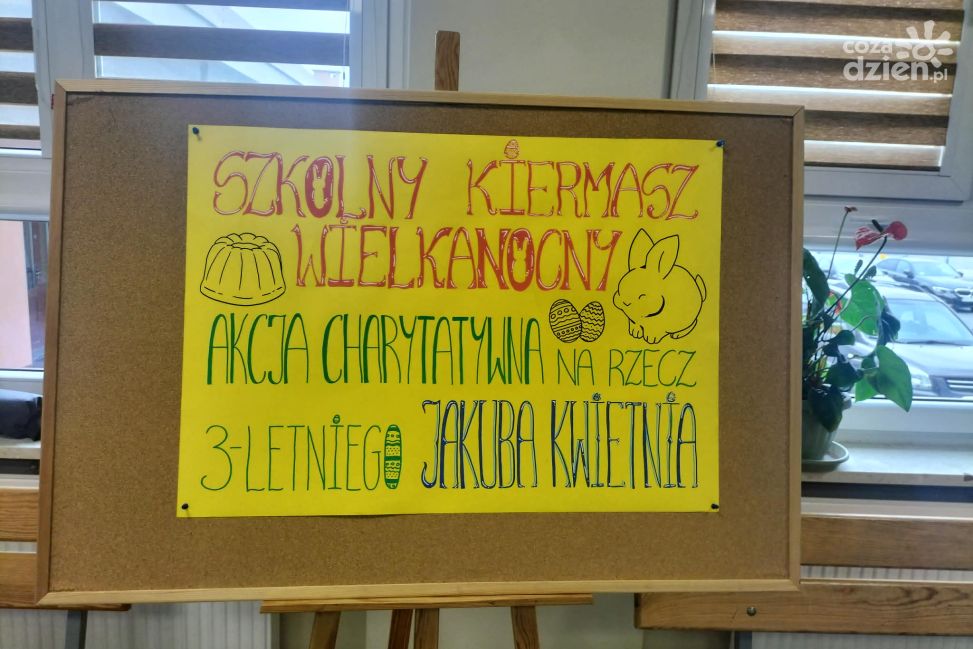 coza
dzień.pl
SZKOLNY KIERMASZ
WIELKANOCNY
AKCJA CHARYTATYWNA NA RZECZ
3-LETNIEGO JAKUBA KWIETNIA